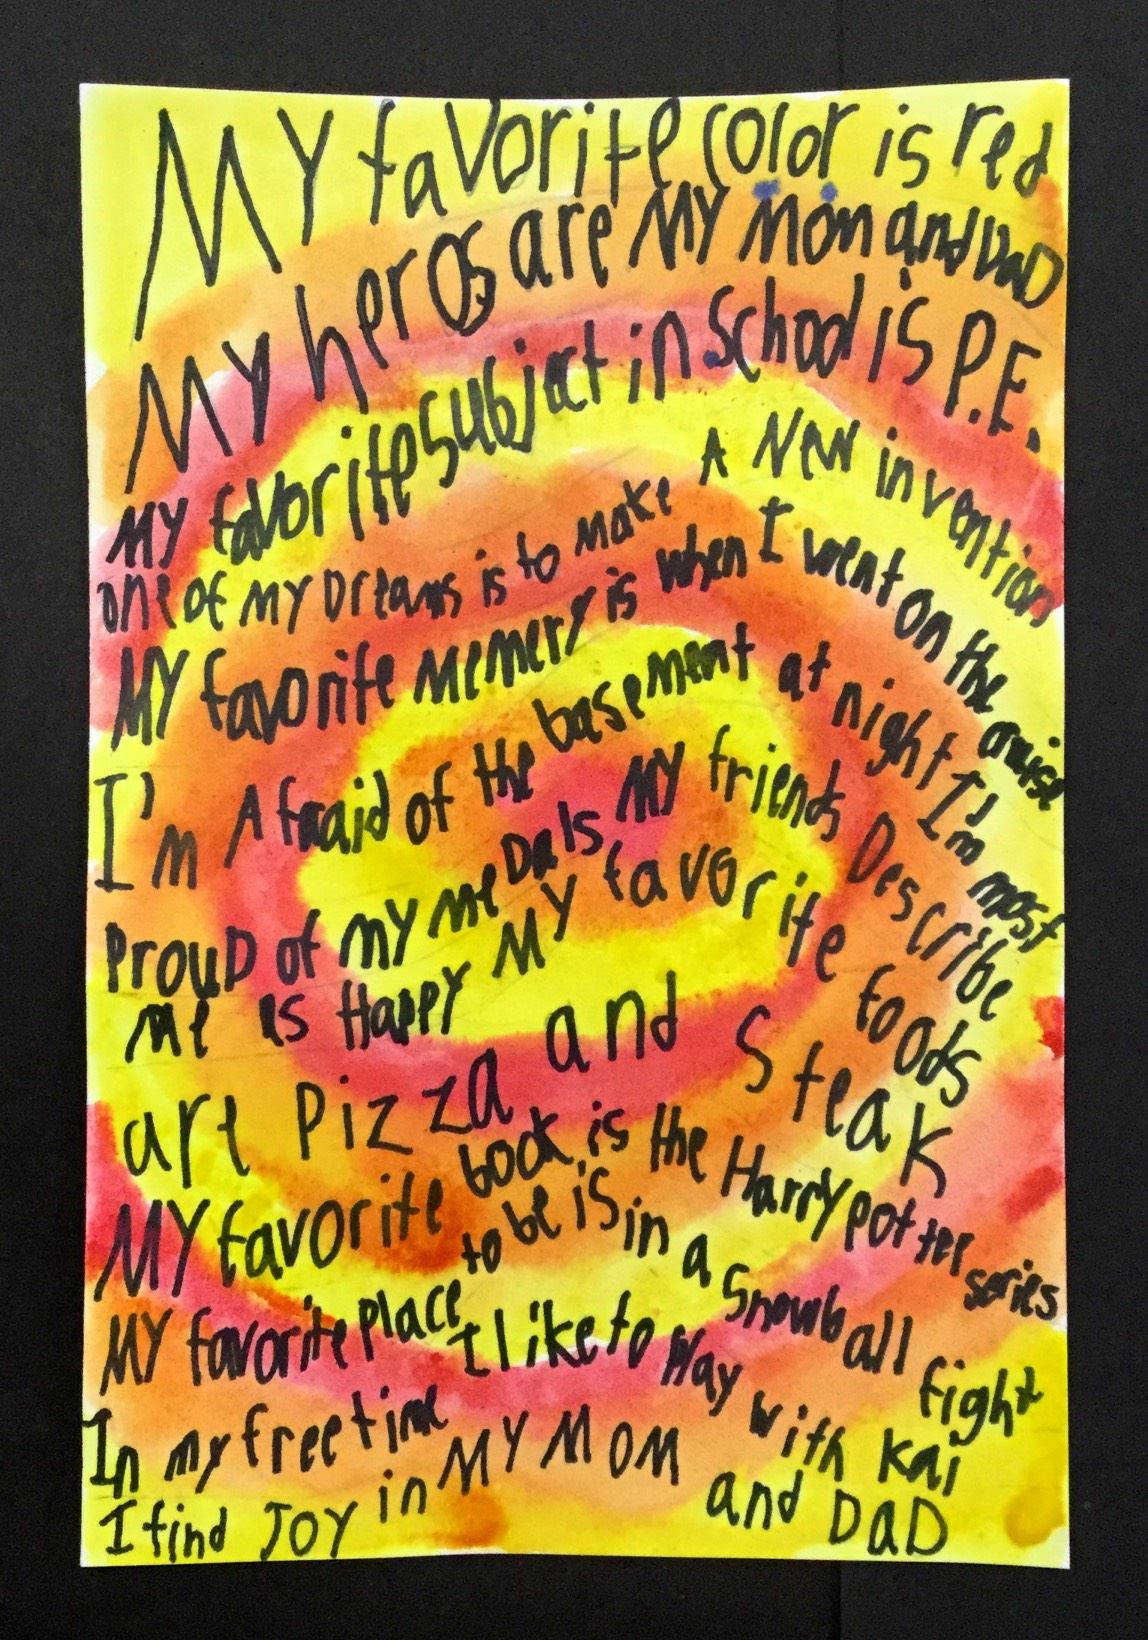 My favorite color is red
My heros are My Mom and DaD
My favorite subject in school is P.E.
one of my Dreams is to make A New invention
My favorite memery is when I went on the cruise
I'm Afraaid of the basement at night I'm most
Proud of my meDals My friends Describe
me as Happy My favorite foods
are Pizza and Steak
My favorite book is the Harry potter series
My favorite place to be is in a Snowball fight
In my free time I like to Play with Kai
I find Joy in My Mom and DaD